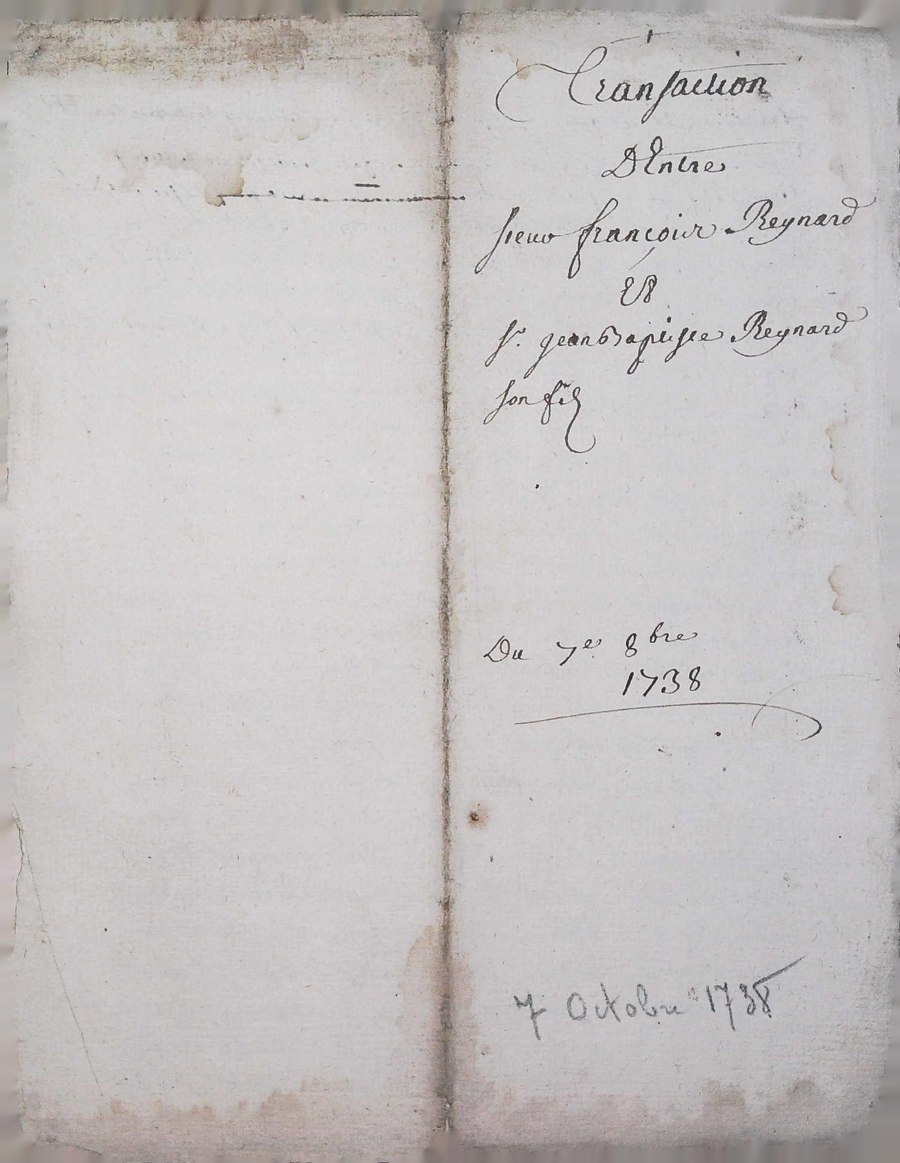 Transaction
D'Entre
sieur francois Reynard
Et
sr. jean Baptiste Reynard
son fils
Du 7e 8bre
1738
7 Octobre 1738